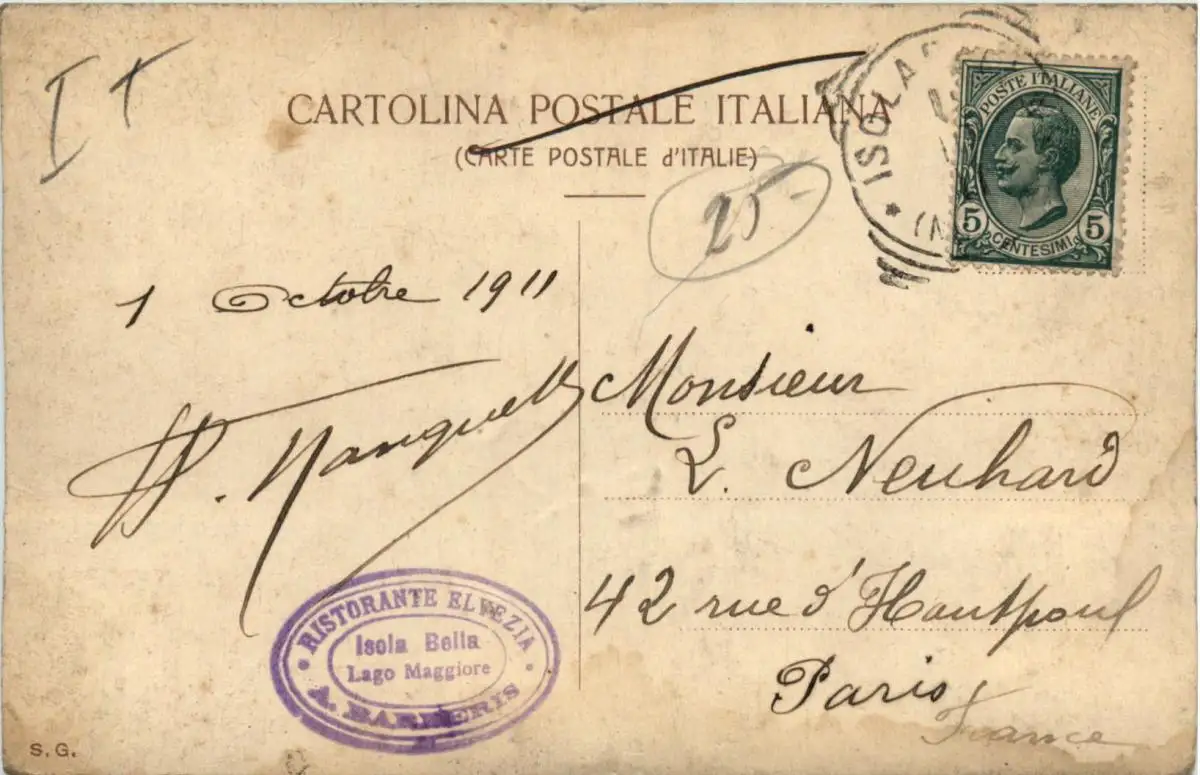 It
CARTOLINA POSTALE ITALIANA
(CARTE POSTALE d'ITALIE)
25-
ISOLA
POSTE ITALIANE
5 CENTESIMI 5
1 Octobre 1911
Monsieur
L. Neuhard
42 rue d'Hautpoul
Paris
France
RISTORANTE ELVEZIA
Isola Bella
Lago Maggiore
A. BARBERIS
S. G.